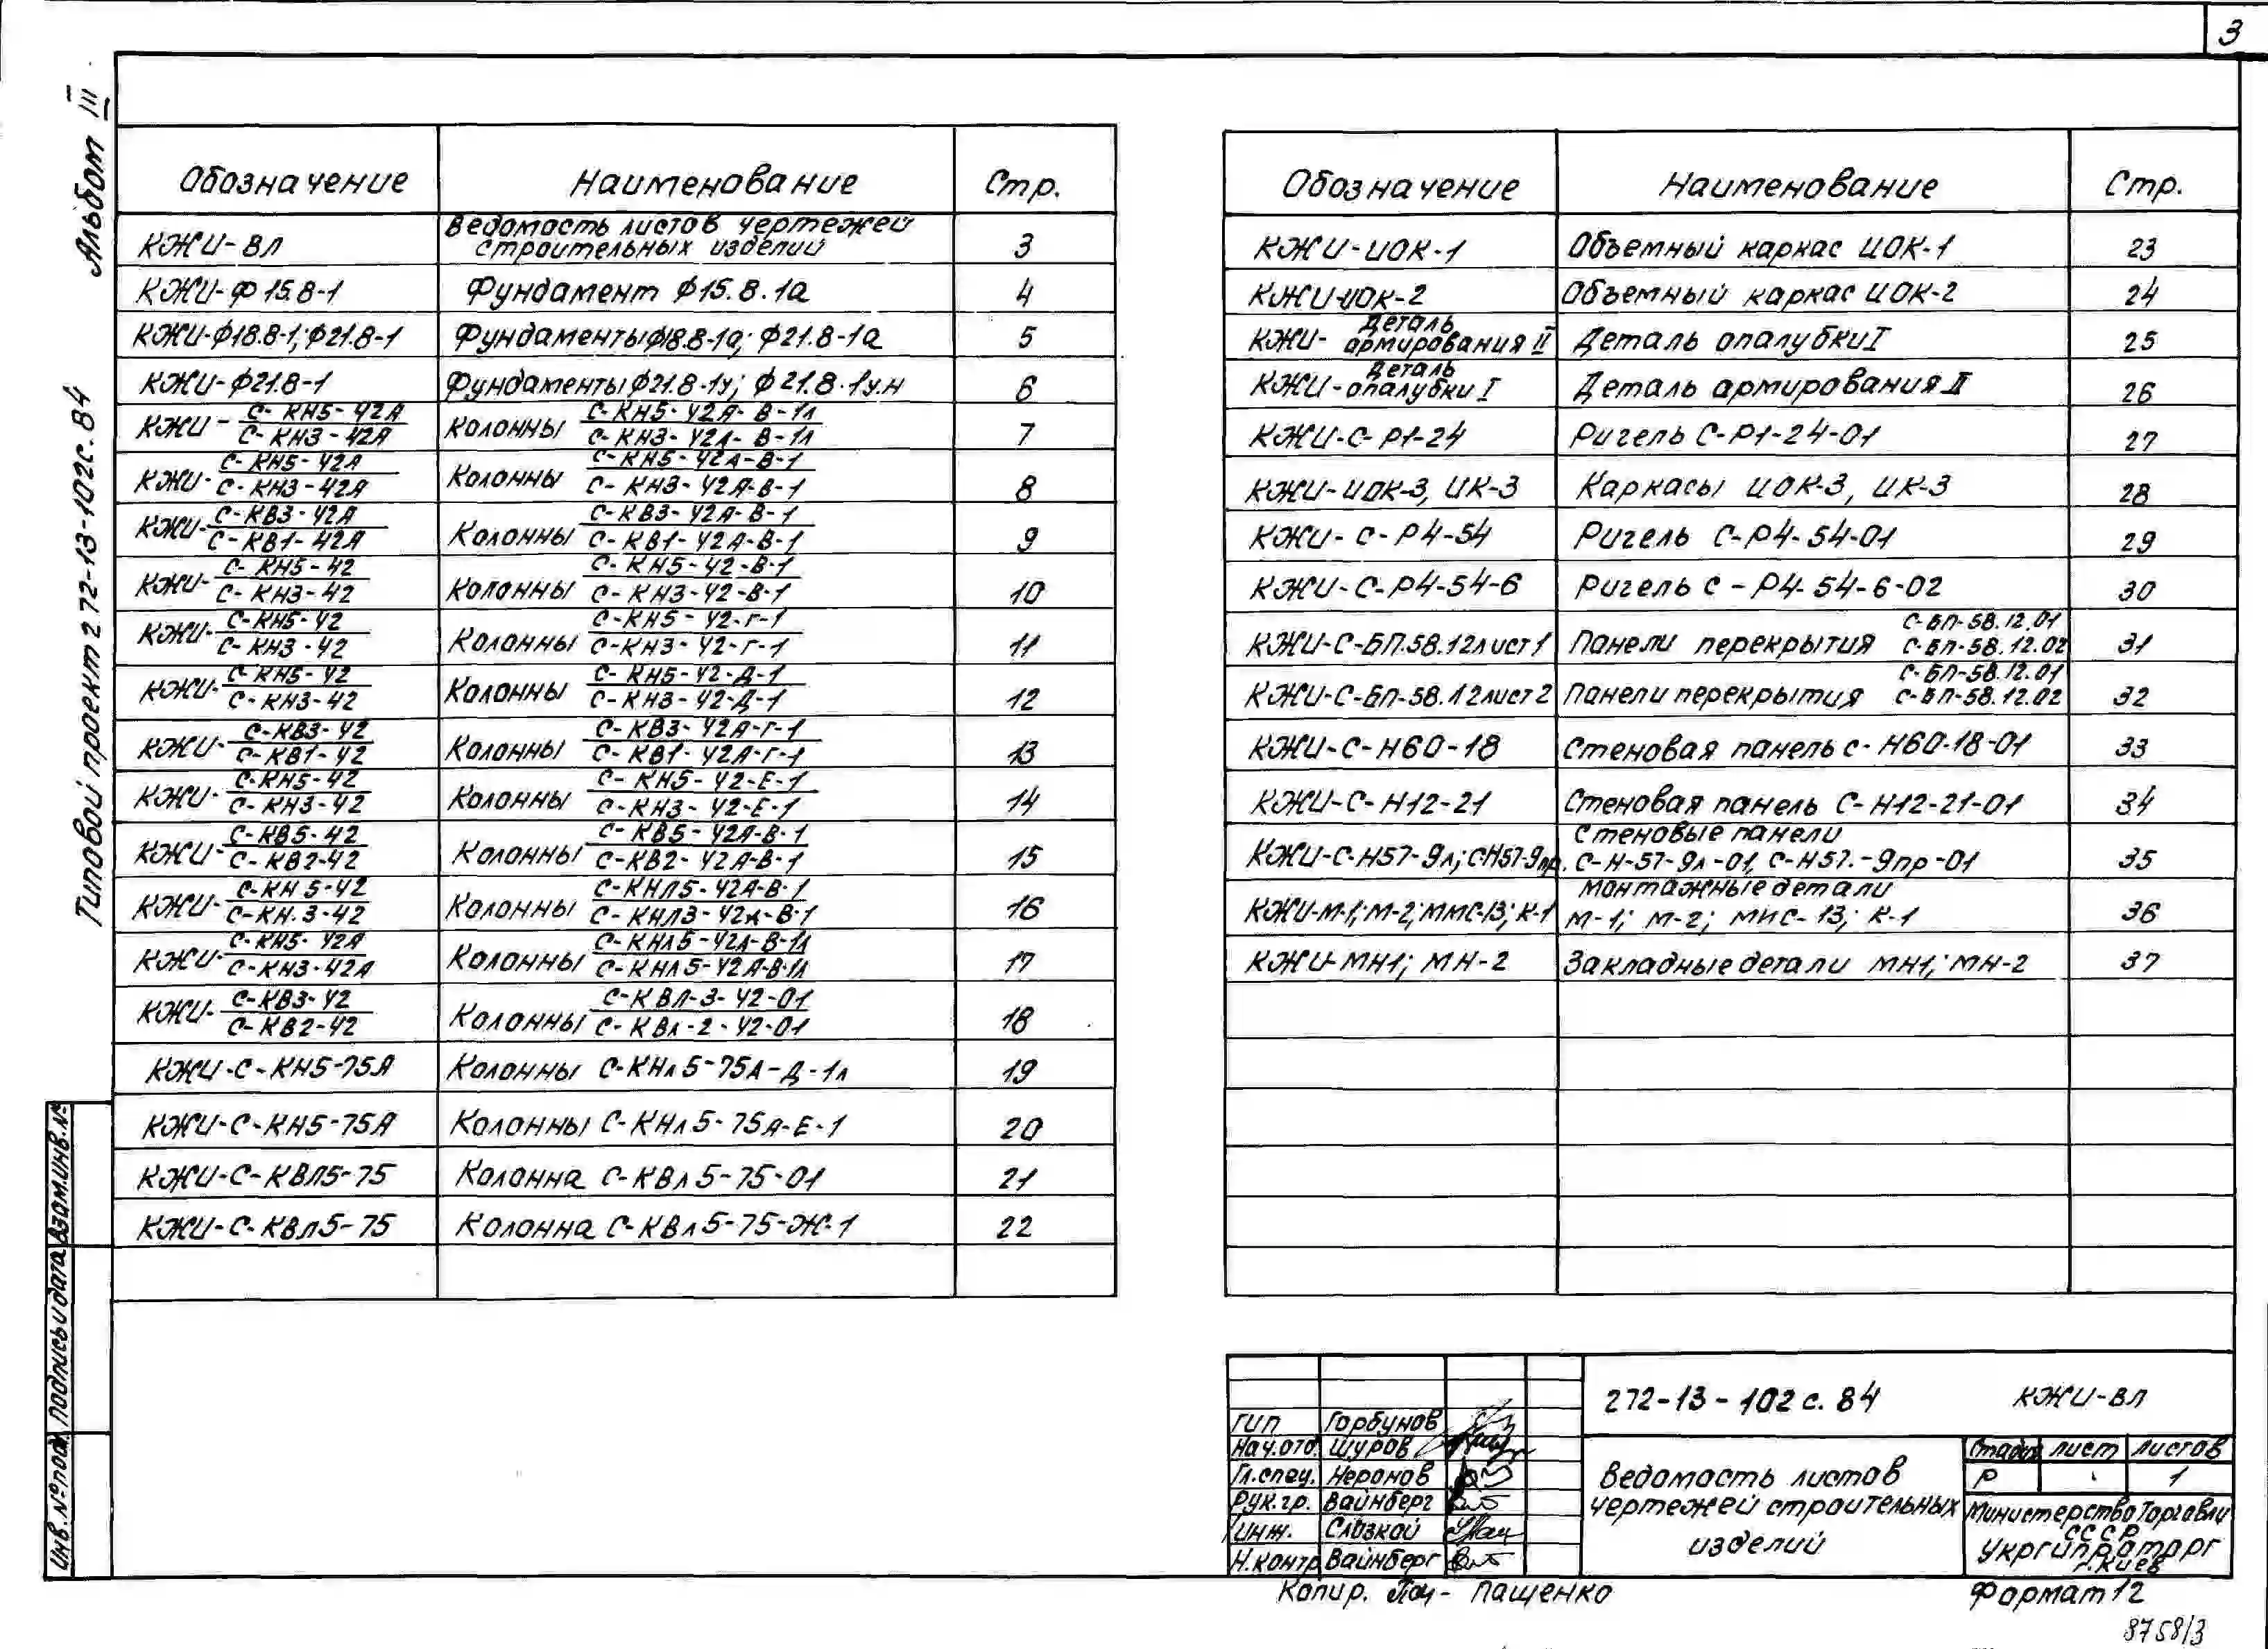 3
Альбом III
Типовой проект 272-13-102с.84
Обозначение Наименование Стр.
КЖИ-ВЛ Ведомость листов чертежей строительных изделий 3
КЖИ-Ф15.8-1 Фундамент Ф15.8.1а 4
КЖИ-Ф18.8-1; Ф21.8-1 Фундаменты Ф18.8-1а; Ф21.8-1а 5
КЖИ-Ф21.8-1 Фундаменты Ф21.8-1у; Ф21.8-1у.н 6
КЖИ- С-КН5-42А / С-КН3-42А Колонны С-КН5-42А-В-1л / С-КН3-42А-В-1л 7
КЖИ- С-КН5-42А / С-КН3-42А Колонны С-КН5-42А-В-1 / С-КН3-42А-В-1 8
КЖИ- С-КВ3-42А / С-КВ1-42А Колонны С-КВ3-42А-В-1 / С-КВ1-42А-В-1 9
КЖИ- С-КН5-42 / С-КН3-42 Колонны С-КН5-42-В-1 / С-КН3-42-В-1 10
КЖИ- С-КН5-42 / С-КН3-42 Колонны С-КН5-42-Г-1 / С-КН3-42-Г-1 11
КЖИ- С-КН5-42 / С-КН3-42 Колонны С-КН5-42-Д-1 / С-КН3-42-Д-1 12
КЖИ- С-КВ3-42 / С-КВ1-42 Колонны С-КВ3-42А-Г-1 / С-КВ1-42А-Г-1 13
КЖИ- С-КН5-42 / С-КН3-42 Колонны С-КН5-42-Е-1 / С-КН3-42-Е-1 14
КЖИ- С-КВ5-42 / С-КВ2-42 Колонны С-КВ5-42А-В-1 / С-КВ2-42А-В-1 15
КЖИ- С-КН5-42 / С-КН.3-42 Колонны С-КНЛ5-42А-В-1 / С-КНЛ3-42А-В-1 16
КЖИ- С-КН5-42А / С-КН3-42А Колонны С-КНЛ5-42А-В-1Л / С-КНЛ5-42А-В-1Л 17
КЖИ- С-КВ3-42 / С-КВ2-42 Колонны С-КВЛ-3-42-01 / С-КВЛ-2-42-01 18
КЖИ-С-КН5-75А Колонны С-КНЛ5-75А-Д-1л 19
КЖИ-С-КН5-75А Колонны С-КНЛ5-75А-Е-1 20
КЖИ-С-КВЛ5-75 Колонна С-КВЛ5-75-01 21
КЖИ-С-КВЛ5-75 Колонна С-КВЛ5-75-Ж-1 22
Обозначение Наименование Стр.
КЖИ-ИОК-1 Объемный каркас ИОК-1 23
КЖИ-ИОК-2 Объемный каркас ИОК-2 24
КЖИ- Деталь армирования II Деталь опалубки I 25
КЖИ- Деталь опалубки I Деталь армирования II 26
КЖИ-С-Р1-24 Ригель С-Р1-24-01 27
КЖИ-ИОК-3, ИК-3 Каркасы ИОК-3, ИК-3 28
КЖИ-С-Р4-54 Ригель С-Р4-54-01 29
КЖИ-С-Р4-54-6 Ригель С-Р4-54-6-02 30
КЖИ-С-БП.58.12лист1 Панели перекрытия С-БП-58.12.01 С-БП-58.12.02 31
КЖИ-С-БП-58.12лист2 Панели перекрытия С-БП-58.12.01 С-БП-58.12.02 32
КЖИ-С-Н60-18 Стеновая панель С-Н60-18-01 33
КЖИ-С-Н12-21 Стеновая панель С-Н12-21-01 34
КЖИ-С-Н57-9л; С-Н57-9пр. Стеновые панели С-Н-57-9л-01, С-Н57.-9пр-01 35
КЖИ-М-1; М-2; ММС-13; К-1 Монтажные детали М-1; М-2; МИС-13; К-1 36
КЖИ-МН1; МН-2 Закладные детали МН1; МН-2 37
Взам.инв.№
Подпись и дата
Инв.№ подл.
272-13-102с.84 КЖИ-ВЛ
ГИП Горбунов
Нач.отд. Щуров
Гл.спец. Неронов
Рук.гр. Вайнберг
Инж. Слозкой
Н.контр Вайнберг
Ведомость листов
чертежей строительных
изделий
Стадия Лист Листов
Р 1
Министерство Торговли
СССР
Укргипроторг
г.Киев
Копир. Пащенко
Формат 12
8758/3